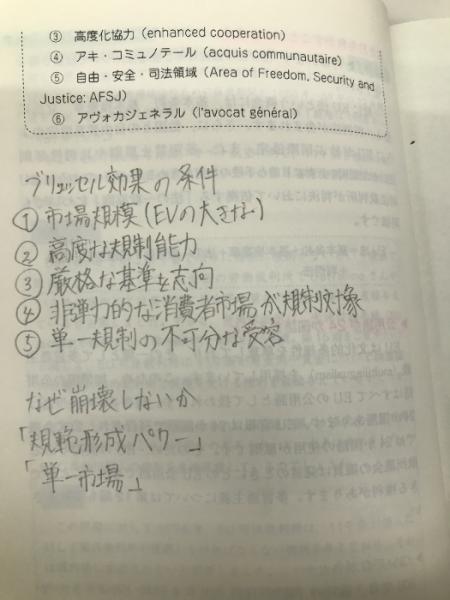 ③ 高度化協力（enhanced cooperation）
④ アキ・コミュノテール（acquis communautaire）
⑤ 自由・安全・司法領域（Area of Freedom, Security and
Justice: AFSJ）
⑥ アヴォカジェネラル（l'avocat général）
ブリュッセル効果の条件
① 市場規模(EVの大きな)
② 高度な規制能力
③ 厳格な基準を志向
④ 非弾力的な消費者市場が規制対象
⑤ 単一規制の不可分な受容
なぜ崩壊しないか
「規範形成パワー」
「単一市場」